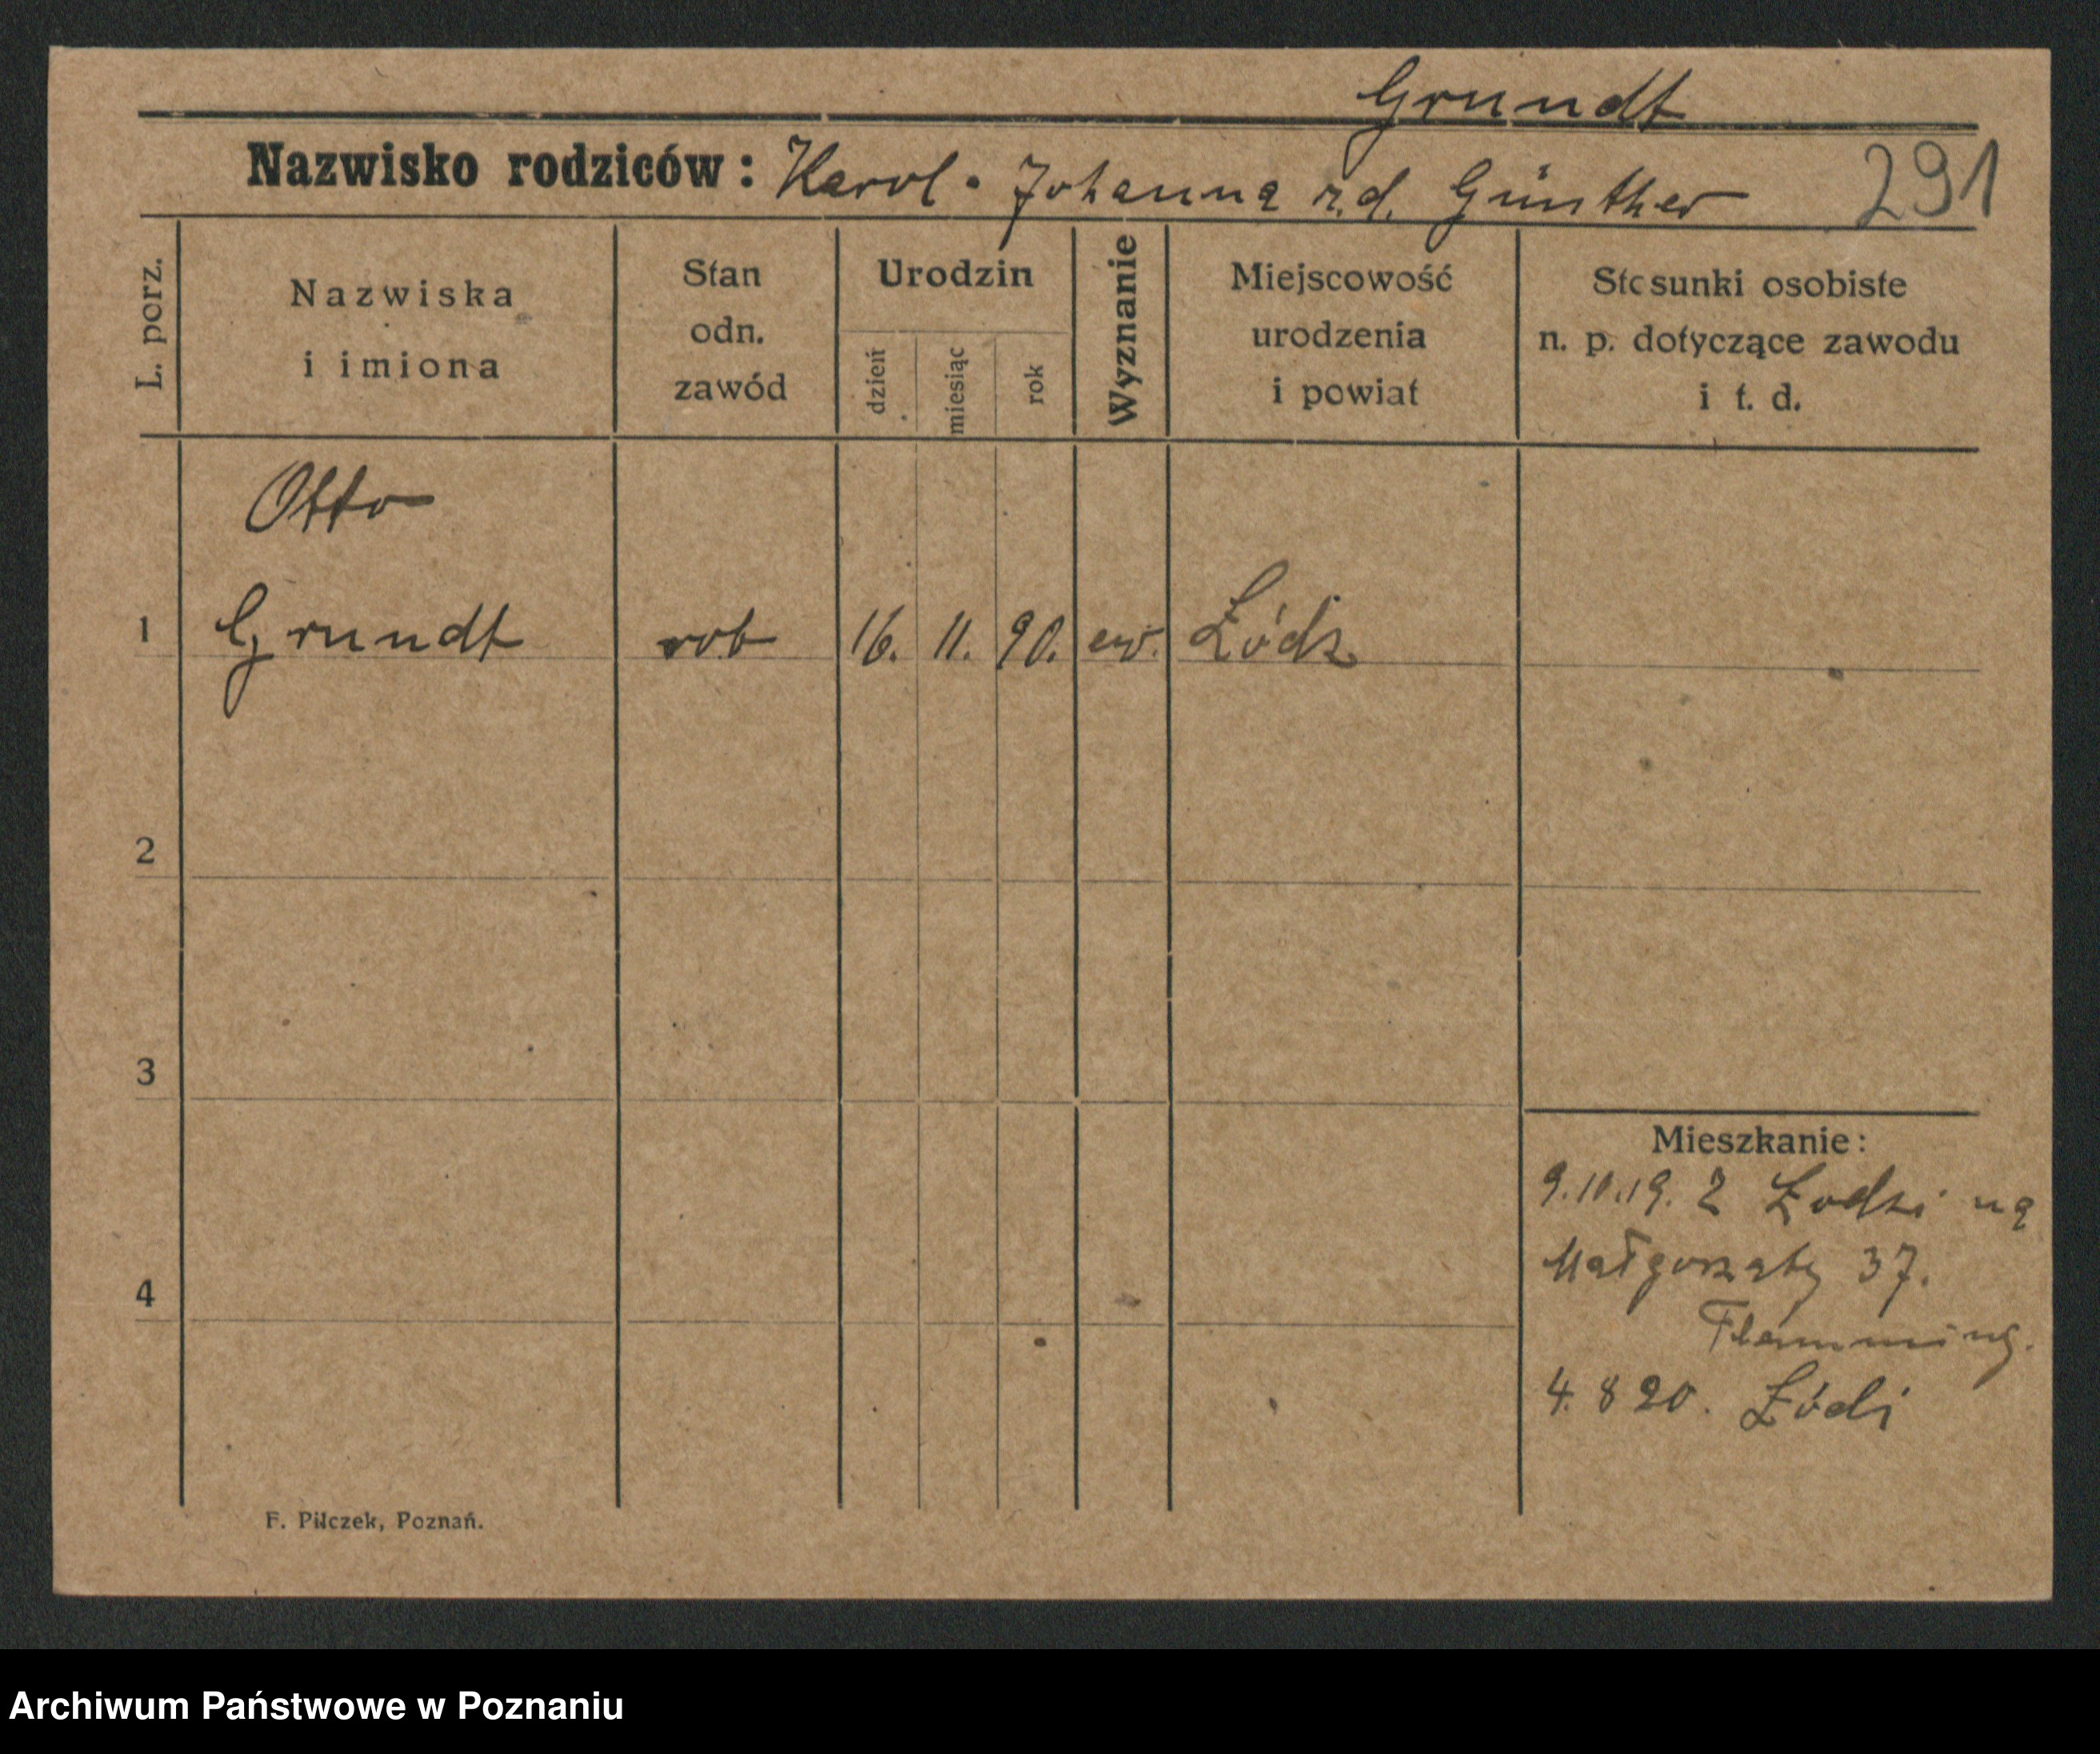 Grundt
Nazwisko rodziców: Karol - Johanna r.d. Günther 291
L. porz.
Nazwiska
i imiona
Stan
odn.
zawód
Urodzin
dzień
miesiąc
rok
Wyznanie
Miejscowość
urodzenia
i powiat
Stosunki osobiste
n. p. dotyczące zawodu
i t. d.
Otto
1 Grundt rob 16. 11. 90. ew. Łódz
2
3
4
Mieszkanie:
9.10.19. Z Łodzi na
Małgorzaty 37.
Flemming.
4. 8 20. Łódź
F. Pilczek, Poznań.
Archiwum Państwowe w Poznaniu